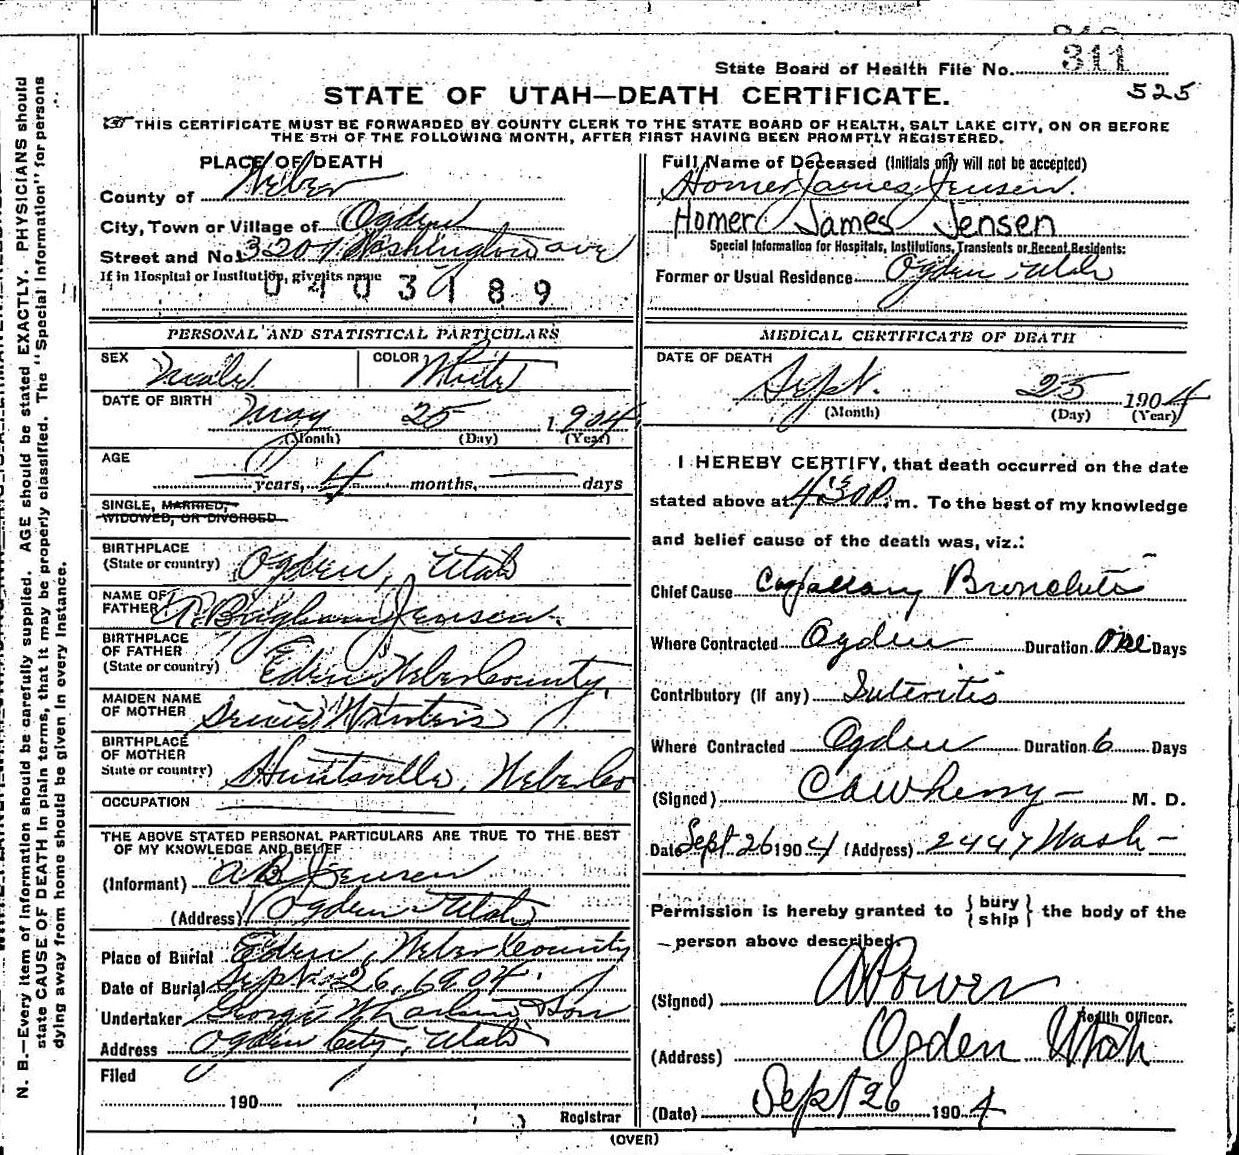 311
State Board of Health File No.
525
STATE OF UTAH—DEATH CERTIFICATE.
THIS CERTIFICATE MUST BE FORWARDED BY COUNTY CLERK TO THE STATE BOARD OF HEALTH, SALT LAKE CITY, ON OR BEFORE
THE 5TH OF THE FOLLOWING MONTH, AFTER FIRST HAVING BEEN PROMPTLY REGISTERED.
PLACE OF DEATH
County of Weber
City, Town or Village of Ogden
Street and No. 3201 Washington ave
If in Hospital or Institution, give its name
0403189
Full Name of Deceased (Initials only will not be accepted)
Homer James Jensen.
Homer James Jensen
Special Information for Hospitals, Institutions, Transients or Recent Residents:
Former or Usual Residence Ogden Utah
PERSONAL AND STATISTICAL PARTICULARS
SEX Male
COLOR White
DATE OF BIRTH
May 25 1904
(Month) (Day) (Year)
AGE
years, 4 months, days
SINGLE, MARRIED,
WIDOWED, OR DIVORCED
BIRTHPLACE
(State or country) Ogden, Utah
NAME OF
FATHER A. Brigham Jensen.
BIRTHPLACE
OF FATHER
(State or country) Eden Weber County,
MAIDEN NAME
OF MOTHER
BIRTHPLACE
OF MOTHER
State or country) Huntsville, Weber Co
OCCUPATION
THE ABOVE STATED PERSONAL PARTICULARS ARE TRUE TO THE BEST
OF MY KNOWLEDGE AND BELIEF
(Informant) A B Jensen
(Address) Ogden Utah
Place of Burial Eden, Weber County
Date of Burial Sept. 26, 1904.
Undertaker George W Larkin & Son
Address Ogden City, Utah
Filed
190
Registrar
MEDICAL CERTIFICATE OF DEATH
DATE OF DEATH
Sept. 25 1904
(Month) (Day) (Year)
I HEREBY CERTIFY, that death occurred on the date
stated above at 4:30 P. m. To the best of my knowledge
and belief cause of the death was, viz.:
Chief Cause Capillary Bronchitis
Where Contracted Ogden Duration one Days
Contributory (if any) Enteritis
Where Contracted Ogden Duration 6 Days
(Signed) M. D.
Date Sept 26 1904 (Address) 2447 Wash
Permission is hereby granted to { bury ship } the body of the
person above described.
(Signed)
Health Officer.
(Address) Ogden Utah
(Date) Sept 26 1904
(OVER)
N. B.—Every item of information should be carefully supplied. AGE should be stated EXACTLY. PHYSICIANS should
state CAUSE OF DEATH in plain terms, that it may be properly classified. The "Special Information" for persons
dying away from home should be given in every instance.